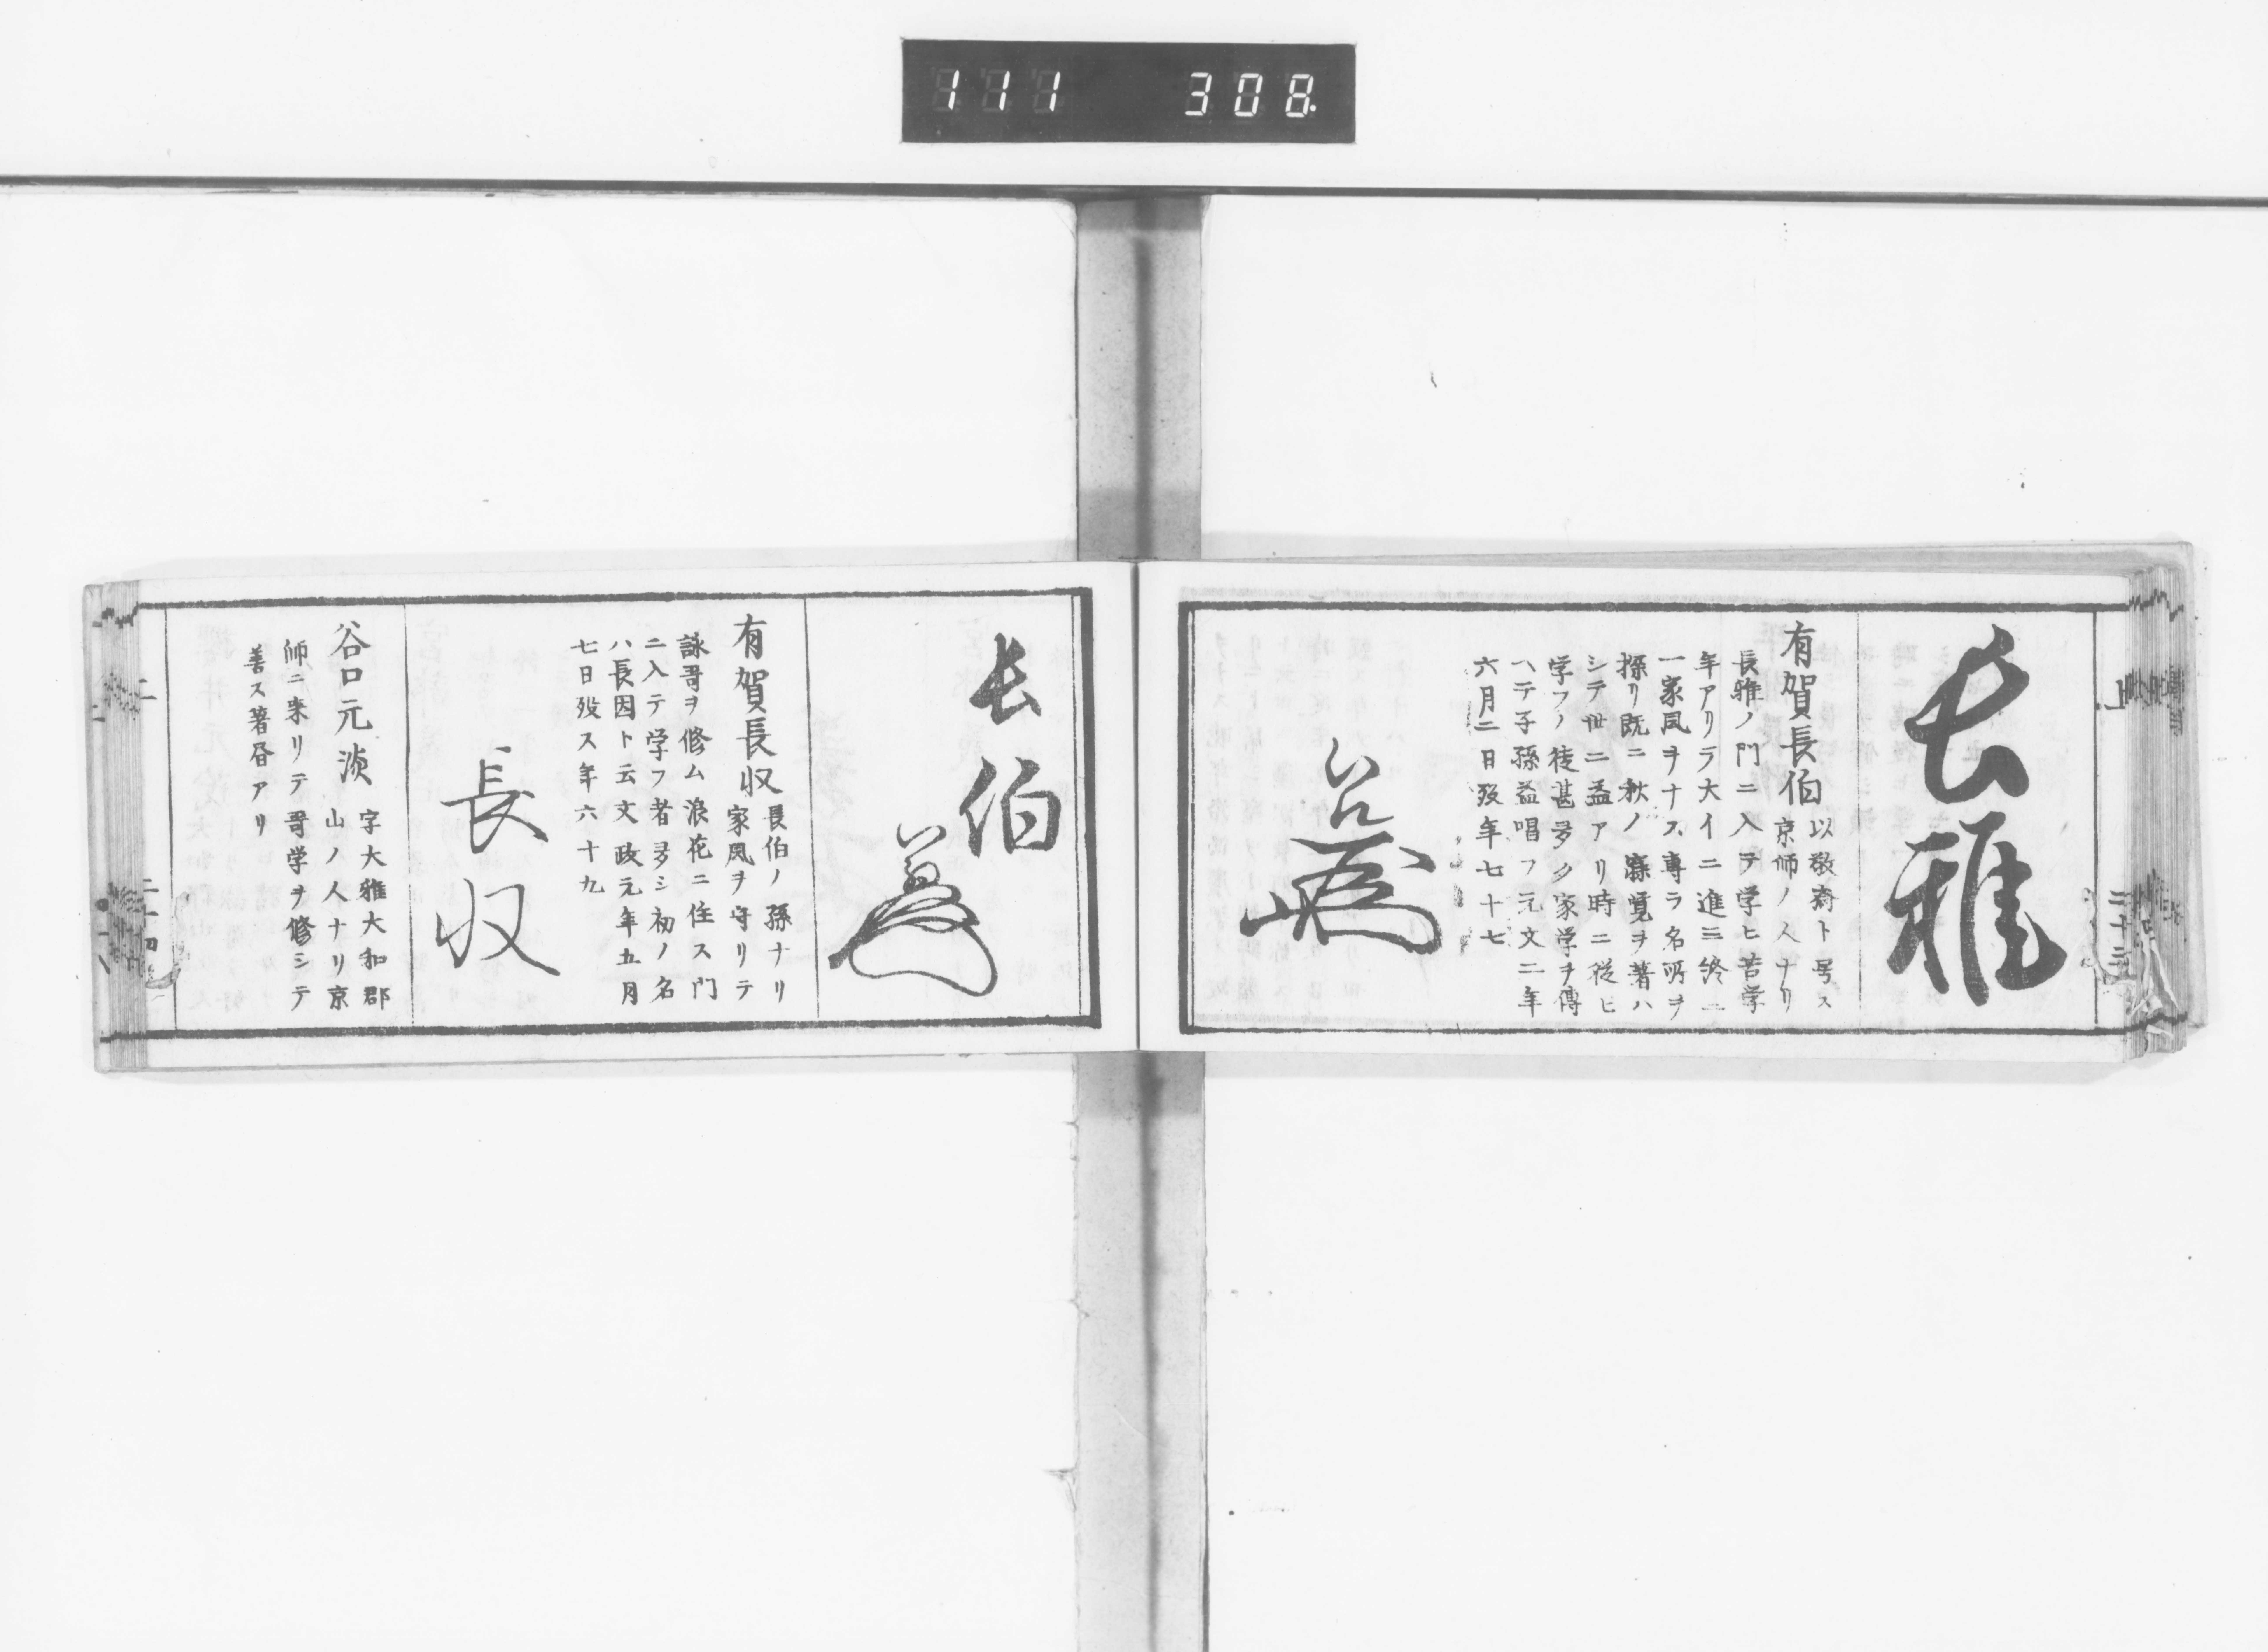 111 308
長雅
有賀長伯
以敬斎ト号ス
京師ノ人ナリ
長雅ノ門ニ入ヲ学ヒ苦学
年アリラ大イニ進ミ終ニ
一家風ヲナス専ラ名所ヲ
探リ既ニ秋ノ寐覚ヲ著ハ
シテ世ニ益アリ時ニ従ヒ
学フノ徒甚多ク家学ヲ傳
ヘテ子孫益唱フ元文二年
六月二日歿年七十七
二十三
長伯
有賀長収
長伯ノ孫ナリ
家風ヲ守リテ
詠哥ヲ修ム浪花ニ住ス門
ニ入テ学フ者多シ初ノ名
ハ長因ト云文政元年五月
七日歿ス年六十九
長収
谷口元淡
字大雅大和郡
山ノ人ナリ京
師ニ来リテ哥学ヲ修シテ
善ス著昏アリ
二十四